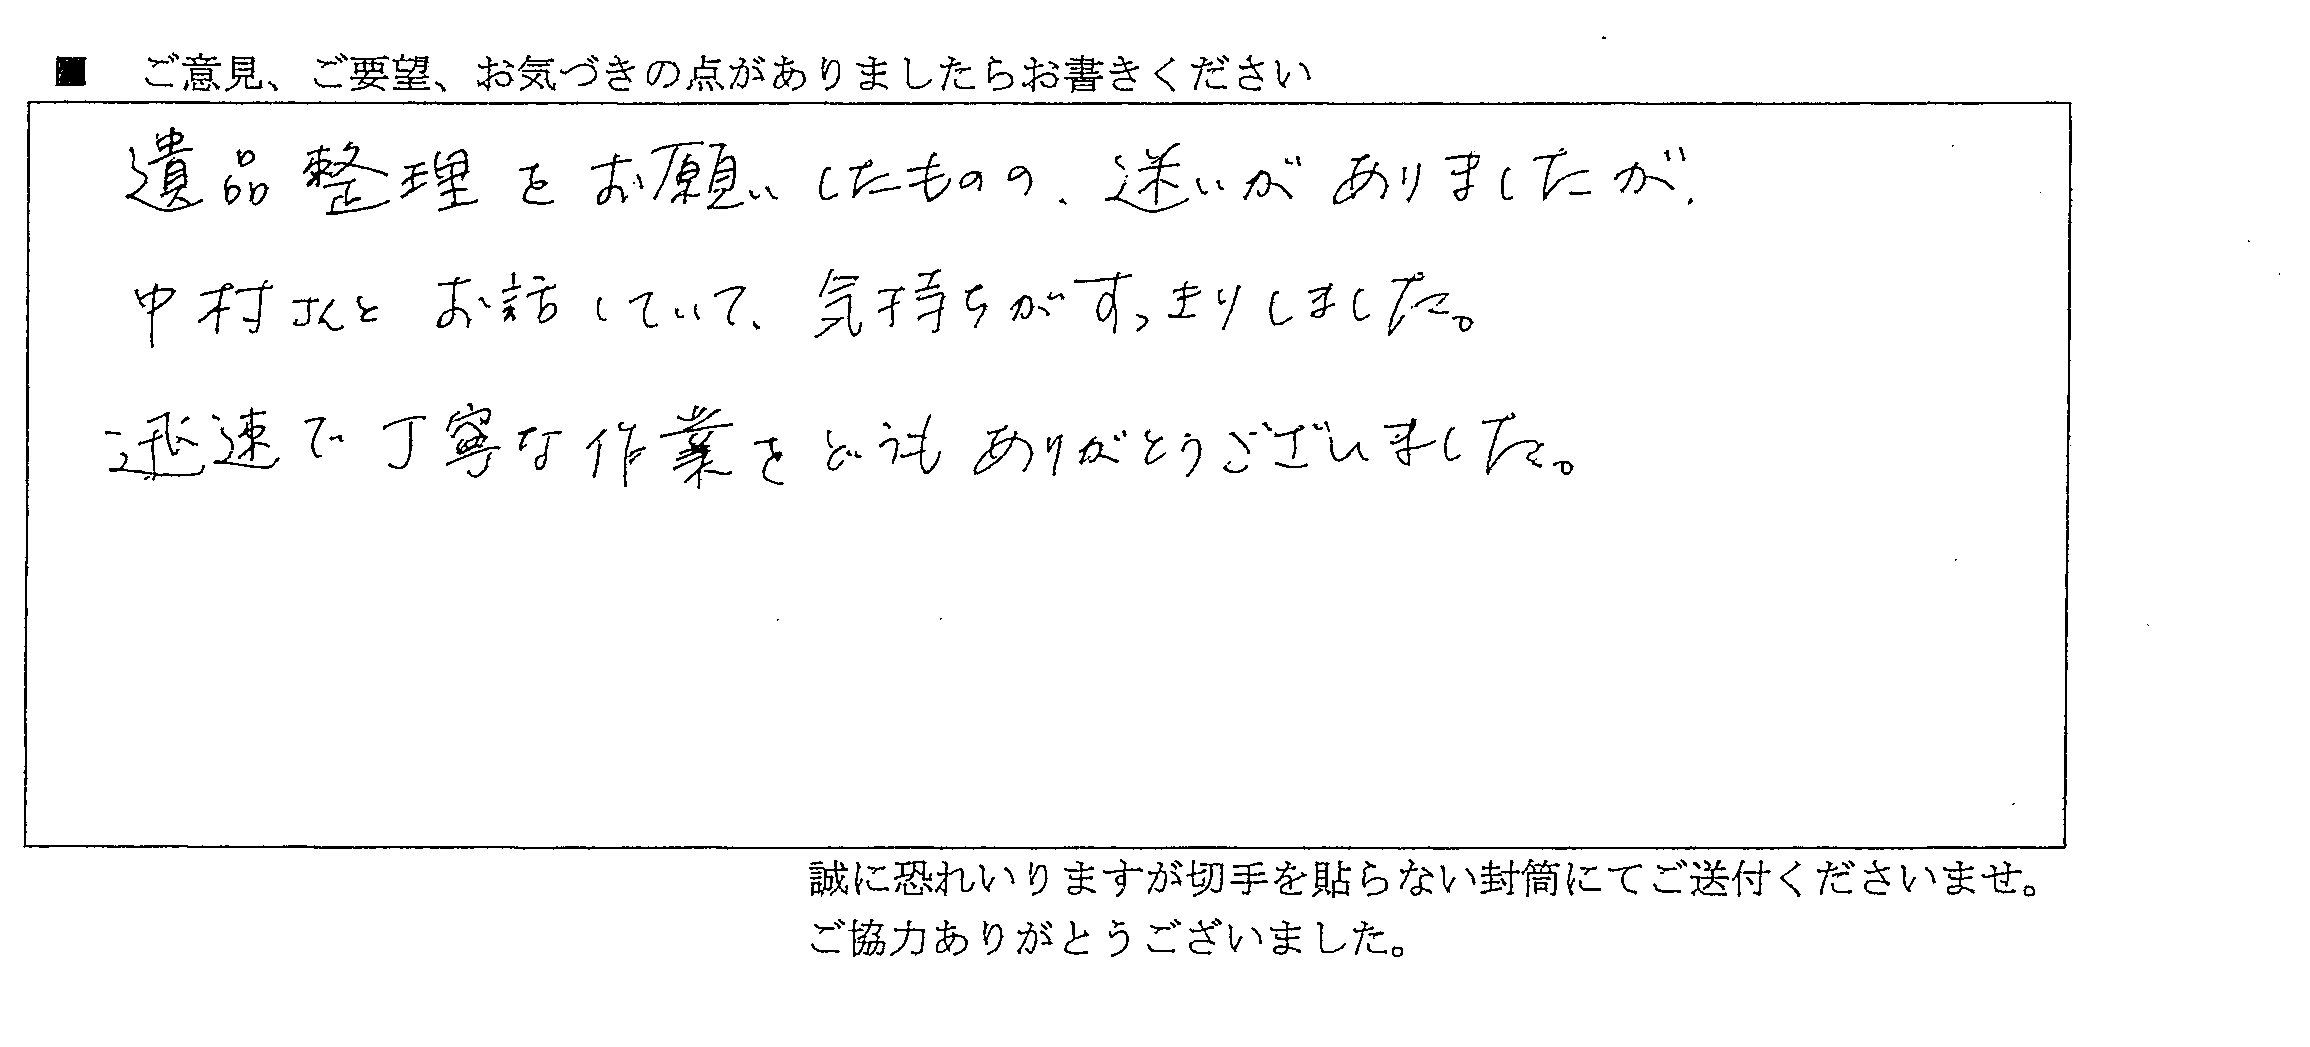 ■ ご意見、ご要望、お気づきの点がありましたらお書きください
遺品整理をお願いしたものの、迷いがありましたが、
中村さんとお話していて、気持ちがすっきりしました。
迅速で丁寧な作業をどうもありがとうございました。
誠に恐れいりますが切手を貼らない封筒にてご送付くださいませ。
ご協力ありがとうございました。